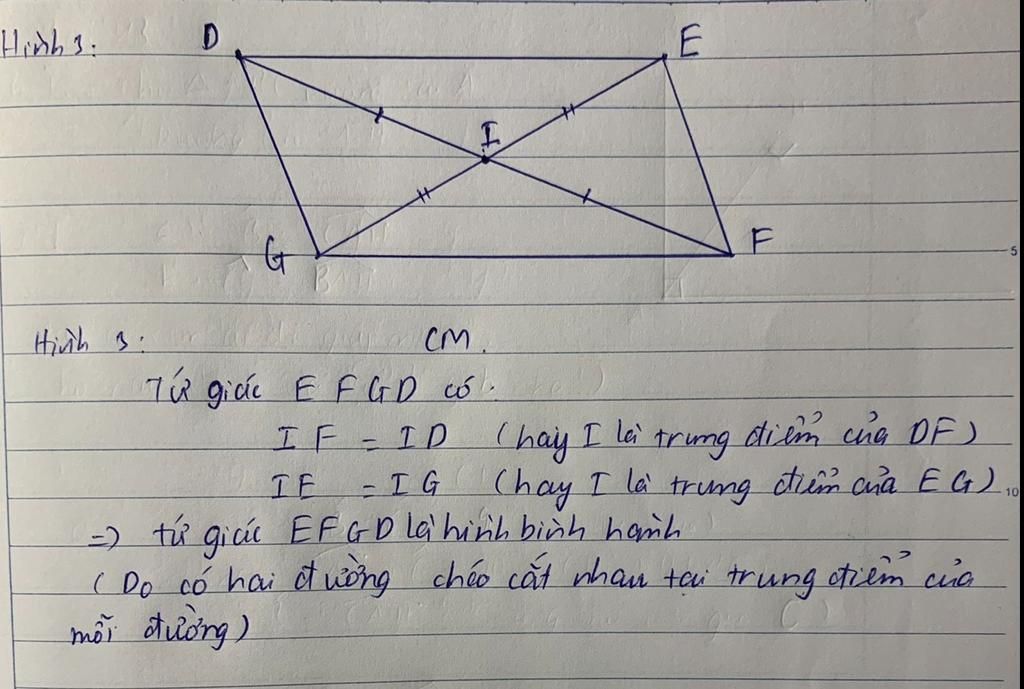 Hình 3:
D
E
I
G
F
5
Hình 3:
CM.
Tứ giác EFGD có:
IF = ID (hay I là trung điểm của DF)
IE = IG (hay I là trung điểm của EG)
10
=> tứ giác EFGD là hình bình hành
(Do có hai đường chéo cắt nhau tại trung điểm của
mỗi đường)